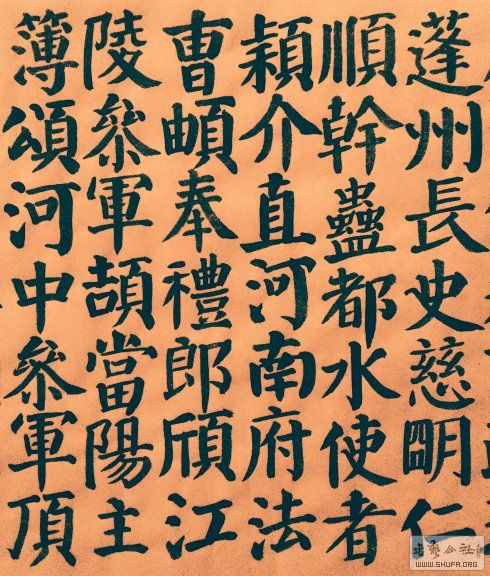 蓬州長史慈明仁
順幹蠱都水使者
穎介直河南府法
曹頔奉禮郎頎江
陵參軍頡當陽主
簿頌河中參軍頂
書藝公社
WWW.SHUFA.ORG